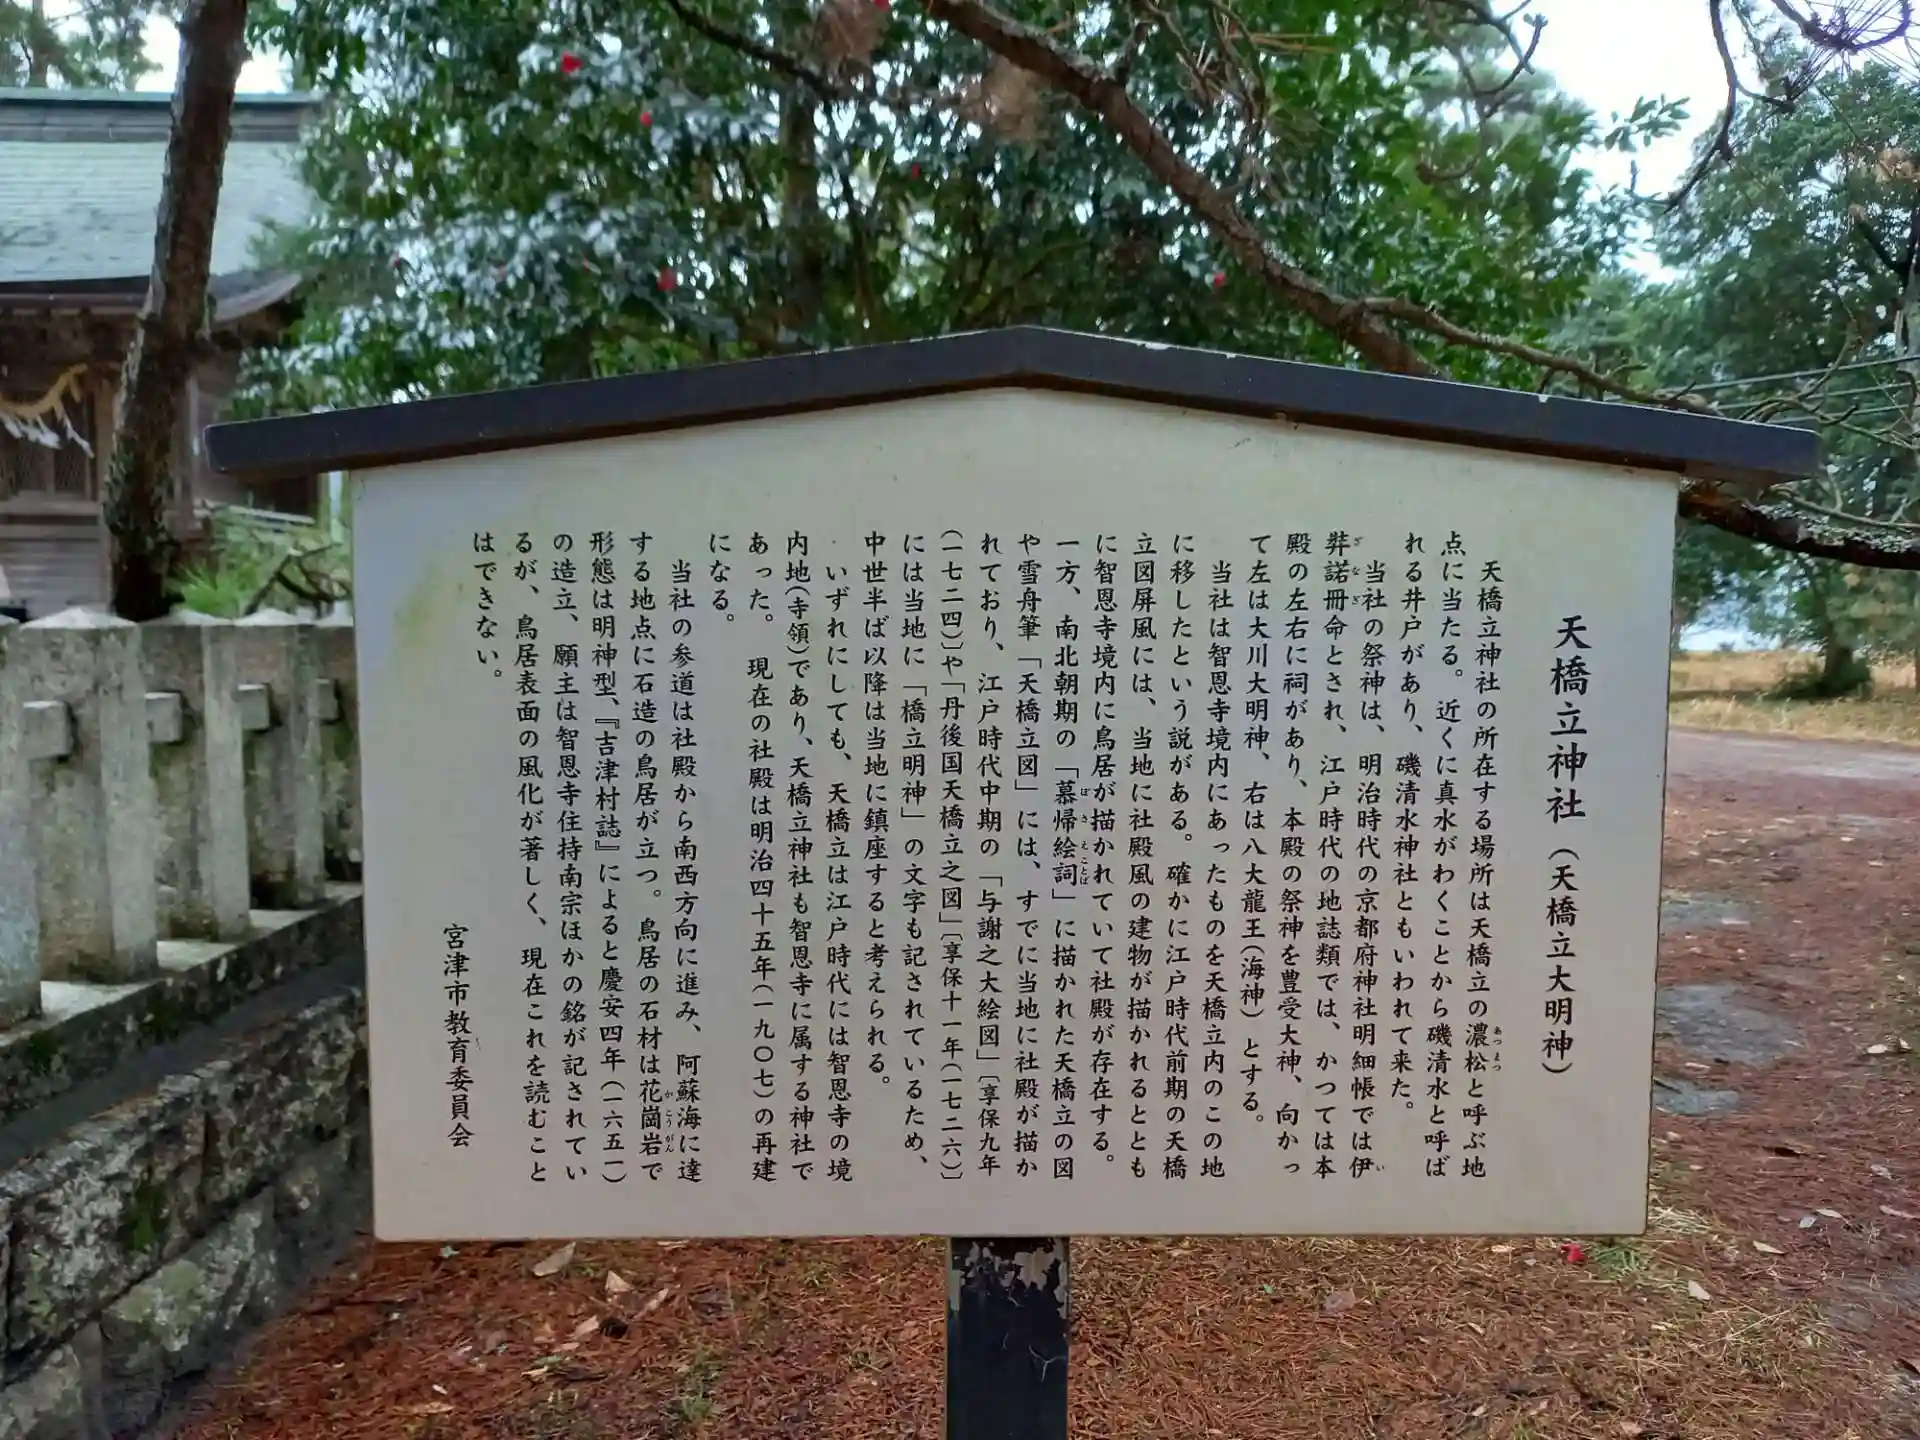 天橋立神社（天橋立大明神）
天橋立神社の所在する場所は天橋立の濃松と呼ぶ地
点に当たる。近くに真水がわくことから磯清水と呼ば
れる井戸があり、磯清水神社ともいわれて来た。
当社の祭神は、明治時代の京都府神社明細帳では伊
弉諾冊命とされ、江戸時代の地誌類では、かつては本
殿の左右に祠があり、本殿の祭神を豊受大神、向かっ
て左は大川大明神、右は八大龍王（海神）とする。
当社は智恩寺境内にあったものを天橋立内のこの地
に移したという説がある。確かに江戸時代前期の天橋
立図屏風には、当地に社殿風の建物が描かれるととも
に智恩寺境内に鳥居が描かれていて社殿が存在する。
一方、南北朝期の「慕帰絵詞」に描かれた天橋立の図
や雪舟筆「天橋立図」には、すでに当地に社殿が描か
れており、江戸時代中期の「与謝之大絵図」〔享保九年
（一七二四）〕や「丹後国天橋立之図」〔享保十一年（一七二六）〕
には当地に「橋立明神」の文字も記されているため、
中世半ば以降は当地に鎮座すると考えられる。
いずれにしても、天橋立は江戸時代には智恩寺の境
内地（寺領）であり、天橋立神社も智恩寺に属する神社で
あった。　現在の社殿は明治四十五年（一九〇七）の再建
になる。
当社の参道は社殿から南西方向に進み、阿蘇海に達
する地点に石造の鳥居が立つ。鳥居の石材は花崗岩で
形態は明神型、『吉津村誌』によると慶安四年（一六五一）
の造立、願主は智恩寺住持南宗ほかの銘が記されてい
るが、鳥居表面の風化が著しく、現在これを読むこと
はできない。
宮津市教育委員会